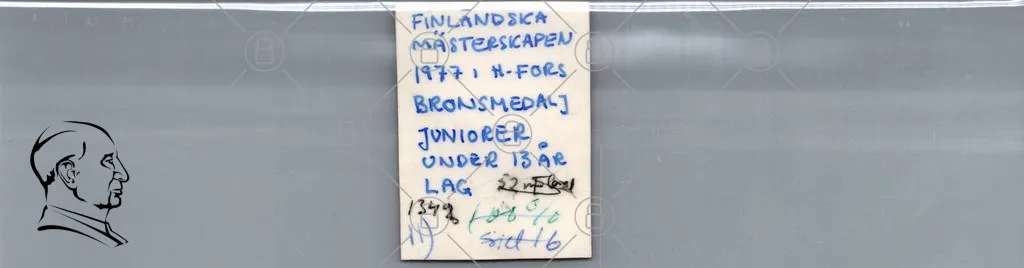 FINLÄNDSKA
MÄSTERSKAPEN
1977 i H-FORS
BRONSMEDALJ
JUNIORER
UNDER 13 ÅR
LAG